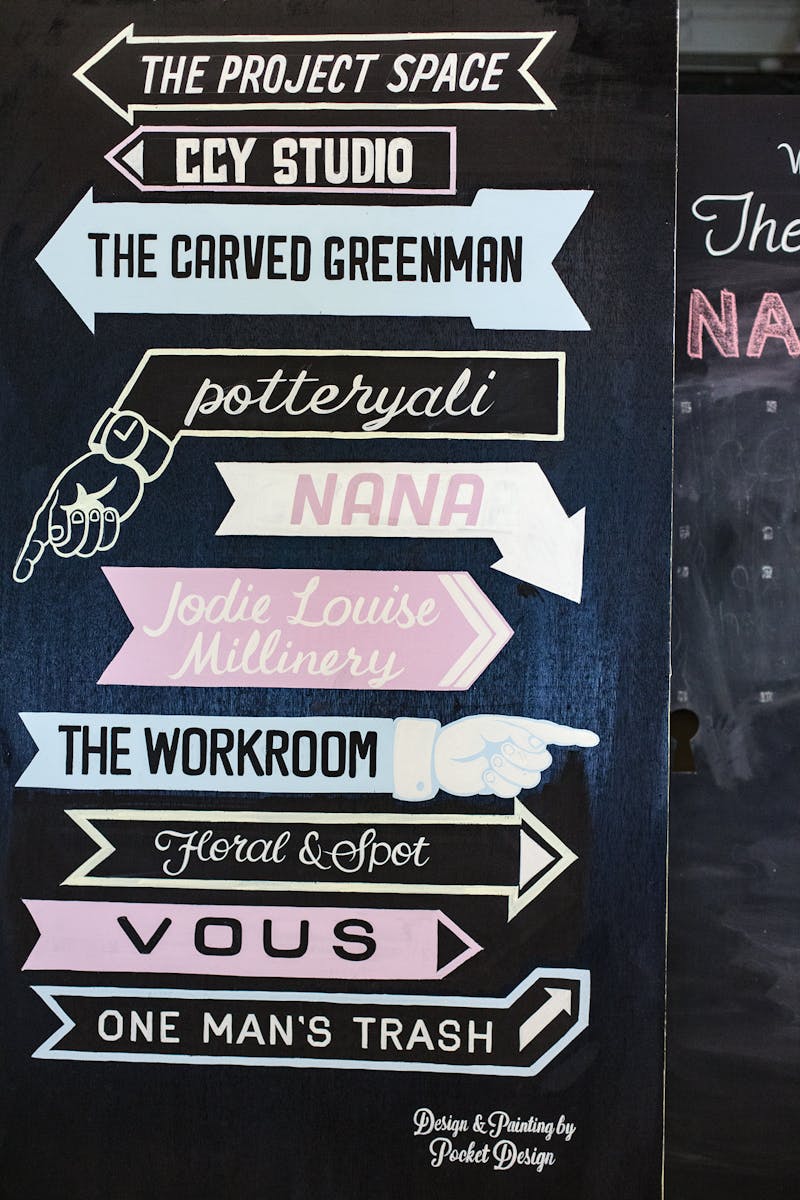 THE PROJECT SPACE
CCY STUDIO
THE CARVED GREENMAN
potteryali
NANA
Jodie Louise
Millinery
THE WORKROOM
Floral & Spot
VOUS
ONE MAN'S TRASH
Design & Painting by
Pocket Design
The
NA